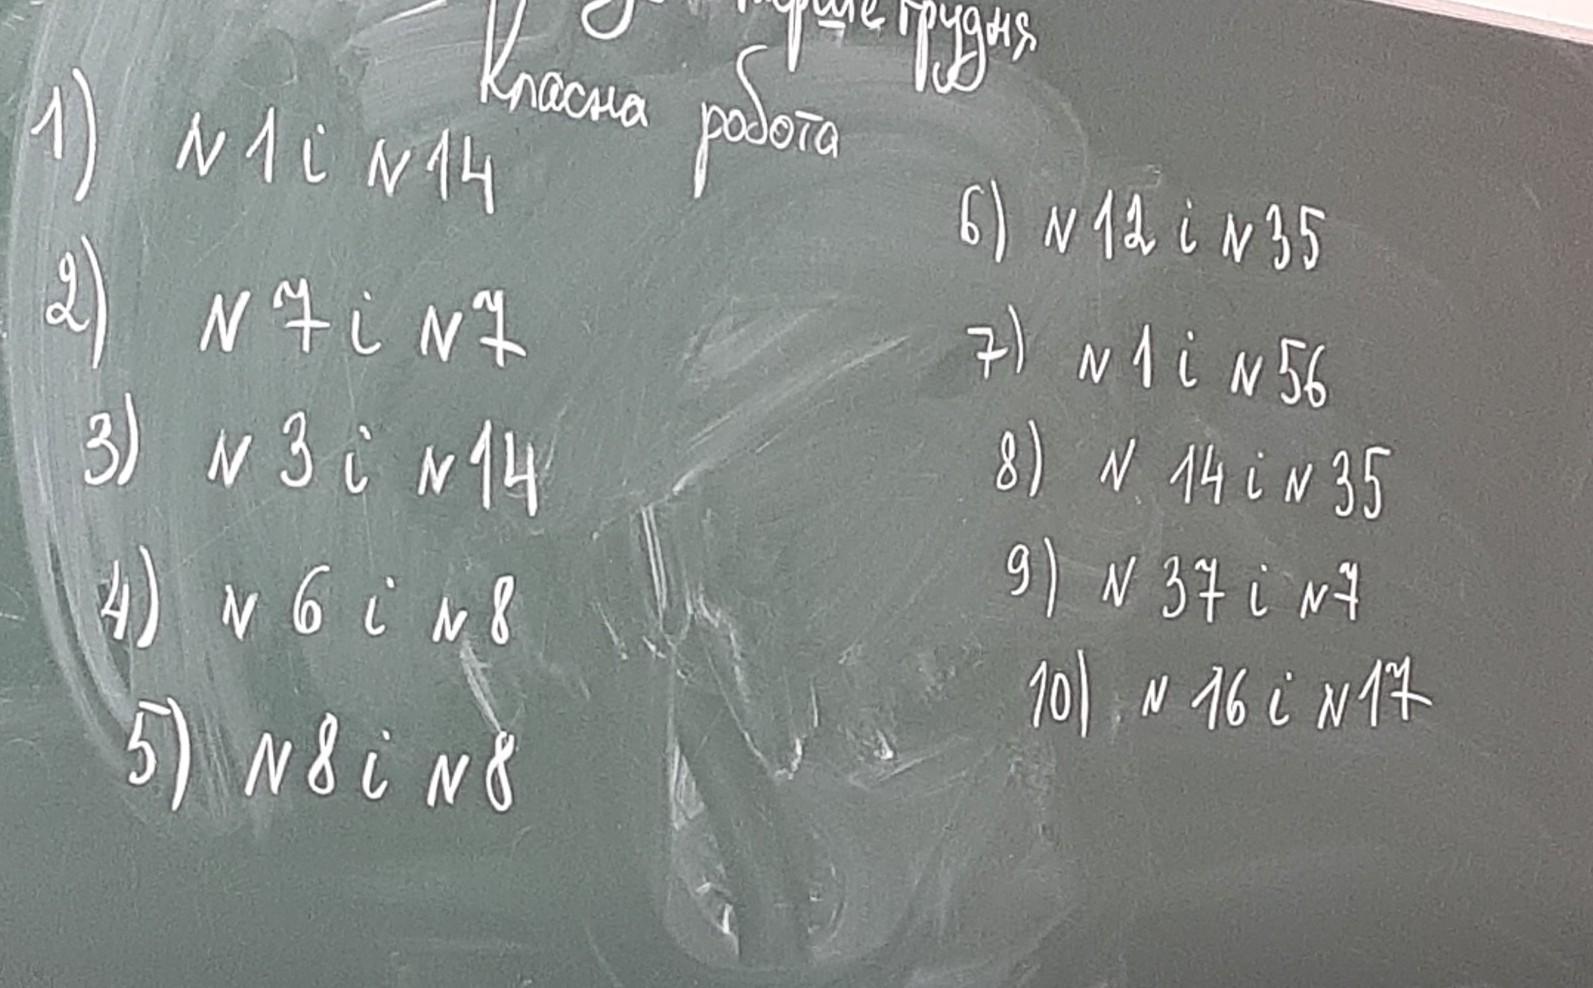 перше грудня
Класна робота
1) N 1 і N 14
2) N 7 і N 7
3) N 3 і N 14
4) N 6 і N 8
5) N 8 і N 8
6) N 12 і N 35
7) N 1 і N 56
8) N 14 і N 35
9) N 37 і N 7
10) N 16 і N 17